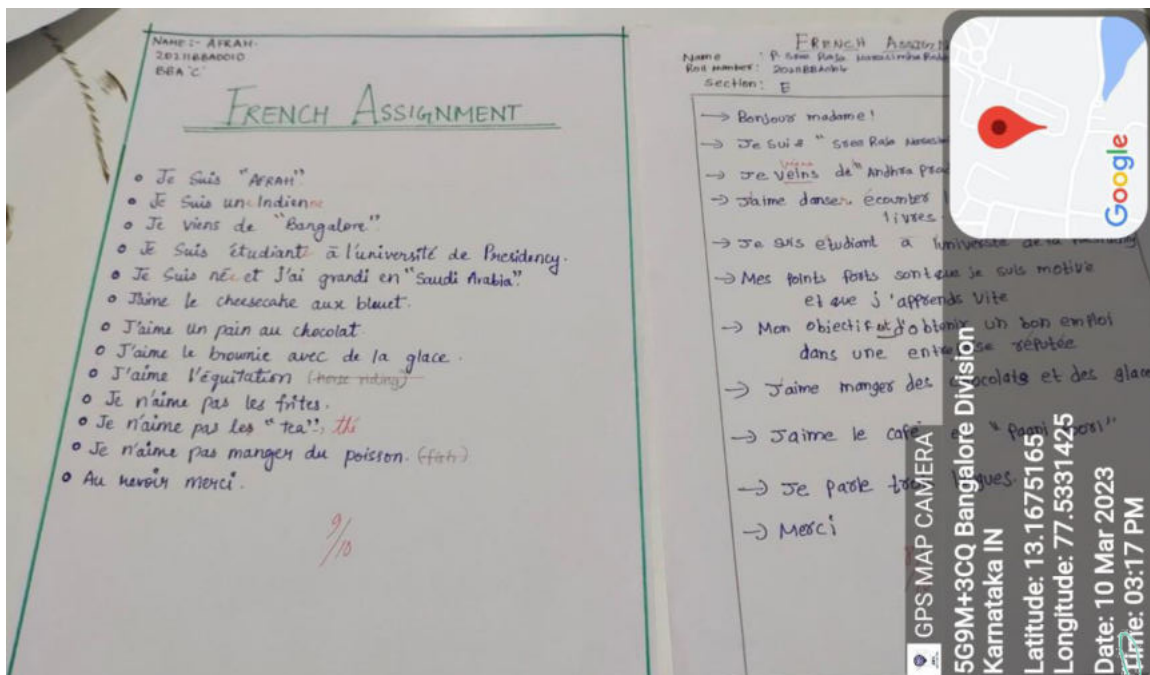 NAME:- AFRAH.
BBA 'C'
FRENCH ASSIGNMENT
Je Suis "AFRAH".
Je Suis une Indienne
Je viens de "Bangalore".
Je Suis étudiante à l'université de Presidency.
Je Suis née et j'ai grandi en "Saudi Arabia".
J'aime le cheesecake aux bleuet.
J'aime un pain au chocolat
J'aime le brownie avec de la glace.
J'aime l'équitation (horse riding)
Je n'aime pas les frites.
Je n'aime pas les "tea", thé
Je n'aime pas manger du poisson. (fish)
Au revoir merci.
9/10
FRENCH
Name : P. Sree Raja
Roll number:
Section: E
→ Bonjour madame!
→ Je suis "Sree Raja
→ Je veins viens de "Andhra
→ J'aime danser, écounter
livres.
→ Je suis etudiant a l'université de la
→ Mes points forts sont que je suis motivie
et que j'apprends vite
→ Mon objectif est d'obtenir un bon emploi
dans une réputée
→ J'aime manger des chocolats et des glace
→ J'aime le café et "Paani poori"
→ Je parle
→ Merci
GPS MAP CAMERA
5G9M+3CQ Bangalore Division
Karnataka IN
Latitude: 13.1675165
Longitude: 77.5331425
Date: 10 Mar 2023
Time: 03:17 PM
Google